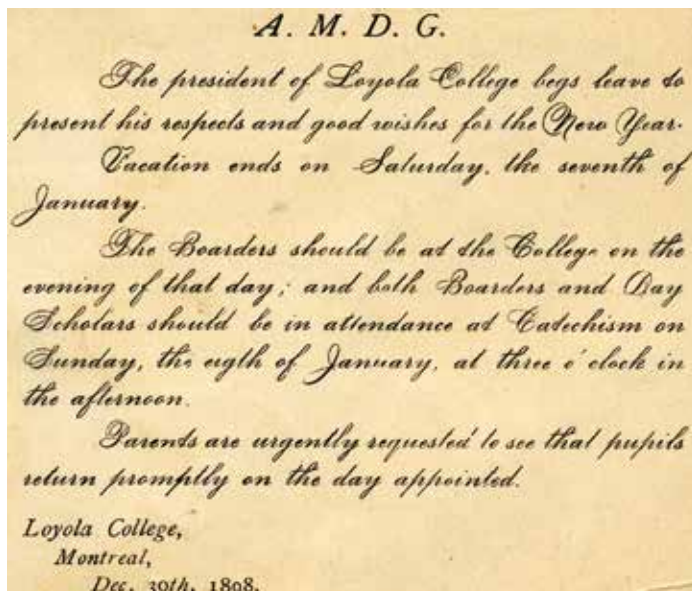 A. M. D. G.
The president of Loyola College begs leave to
present his respects and good wishes for the New Year.
Vacation ends on Saturday, the seventh of
January.
The Boarders should be at the College on the
evening of that day; and both Boarders and Day
Scholars should be in attendance at Catechism on
Sunday, the eigth of January, at three o'clock in
the afternoon.
Parents are urgently requested to see that pupils
return promptly on the day appointed.
Loyola College,
Montreal,
Dec. 30th, 1898.